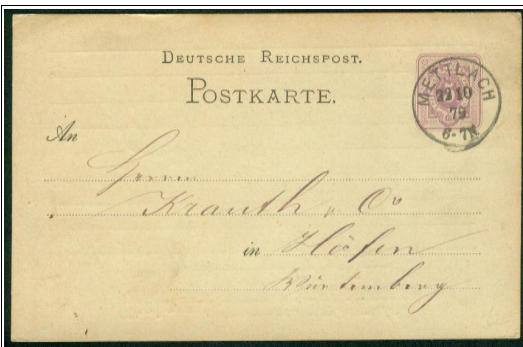 DEUTSCHE REICHSPOST.
POSTKARTE.
METTLACH
22 10
79
6-7N
An
Herrn
Krauth & Co
in Höfen
Würtemberg